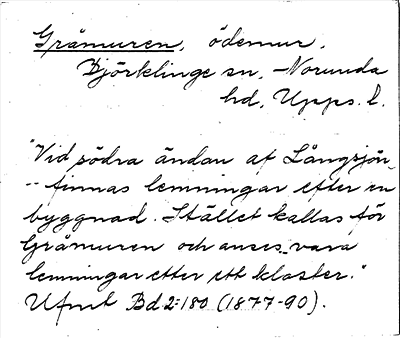 Gråmuren, ödemur.
Björklinge sn, Norunda
hd, Upps. l.
"Vid södra ändan af Långsjön
-- finnas lemningar efter en
byggnad. Stället kallas för
Gråmuren och anses vara
lemningar efter ett kloster."
Ufmt Bd 2:180 (1877-90).